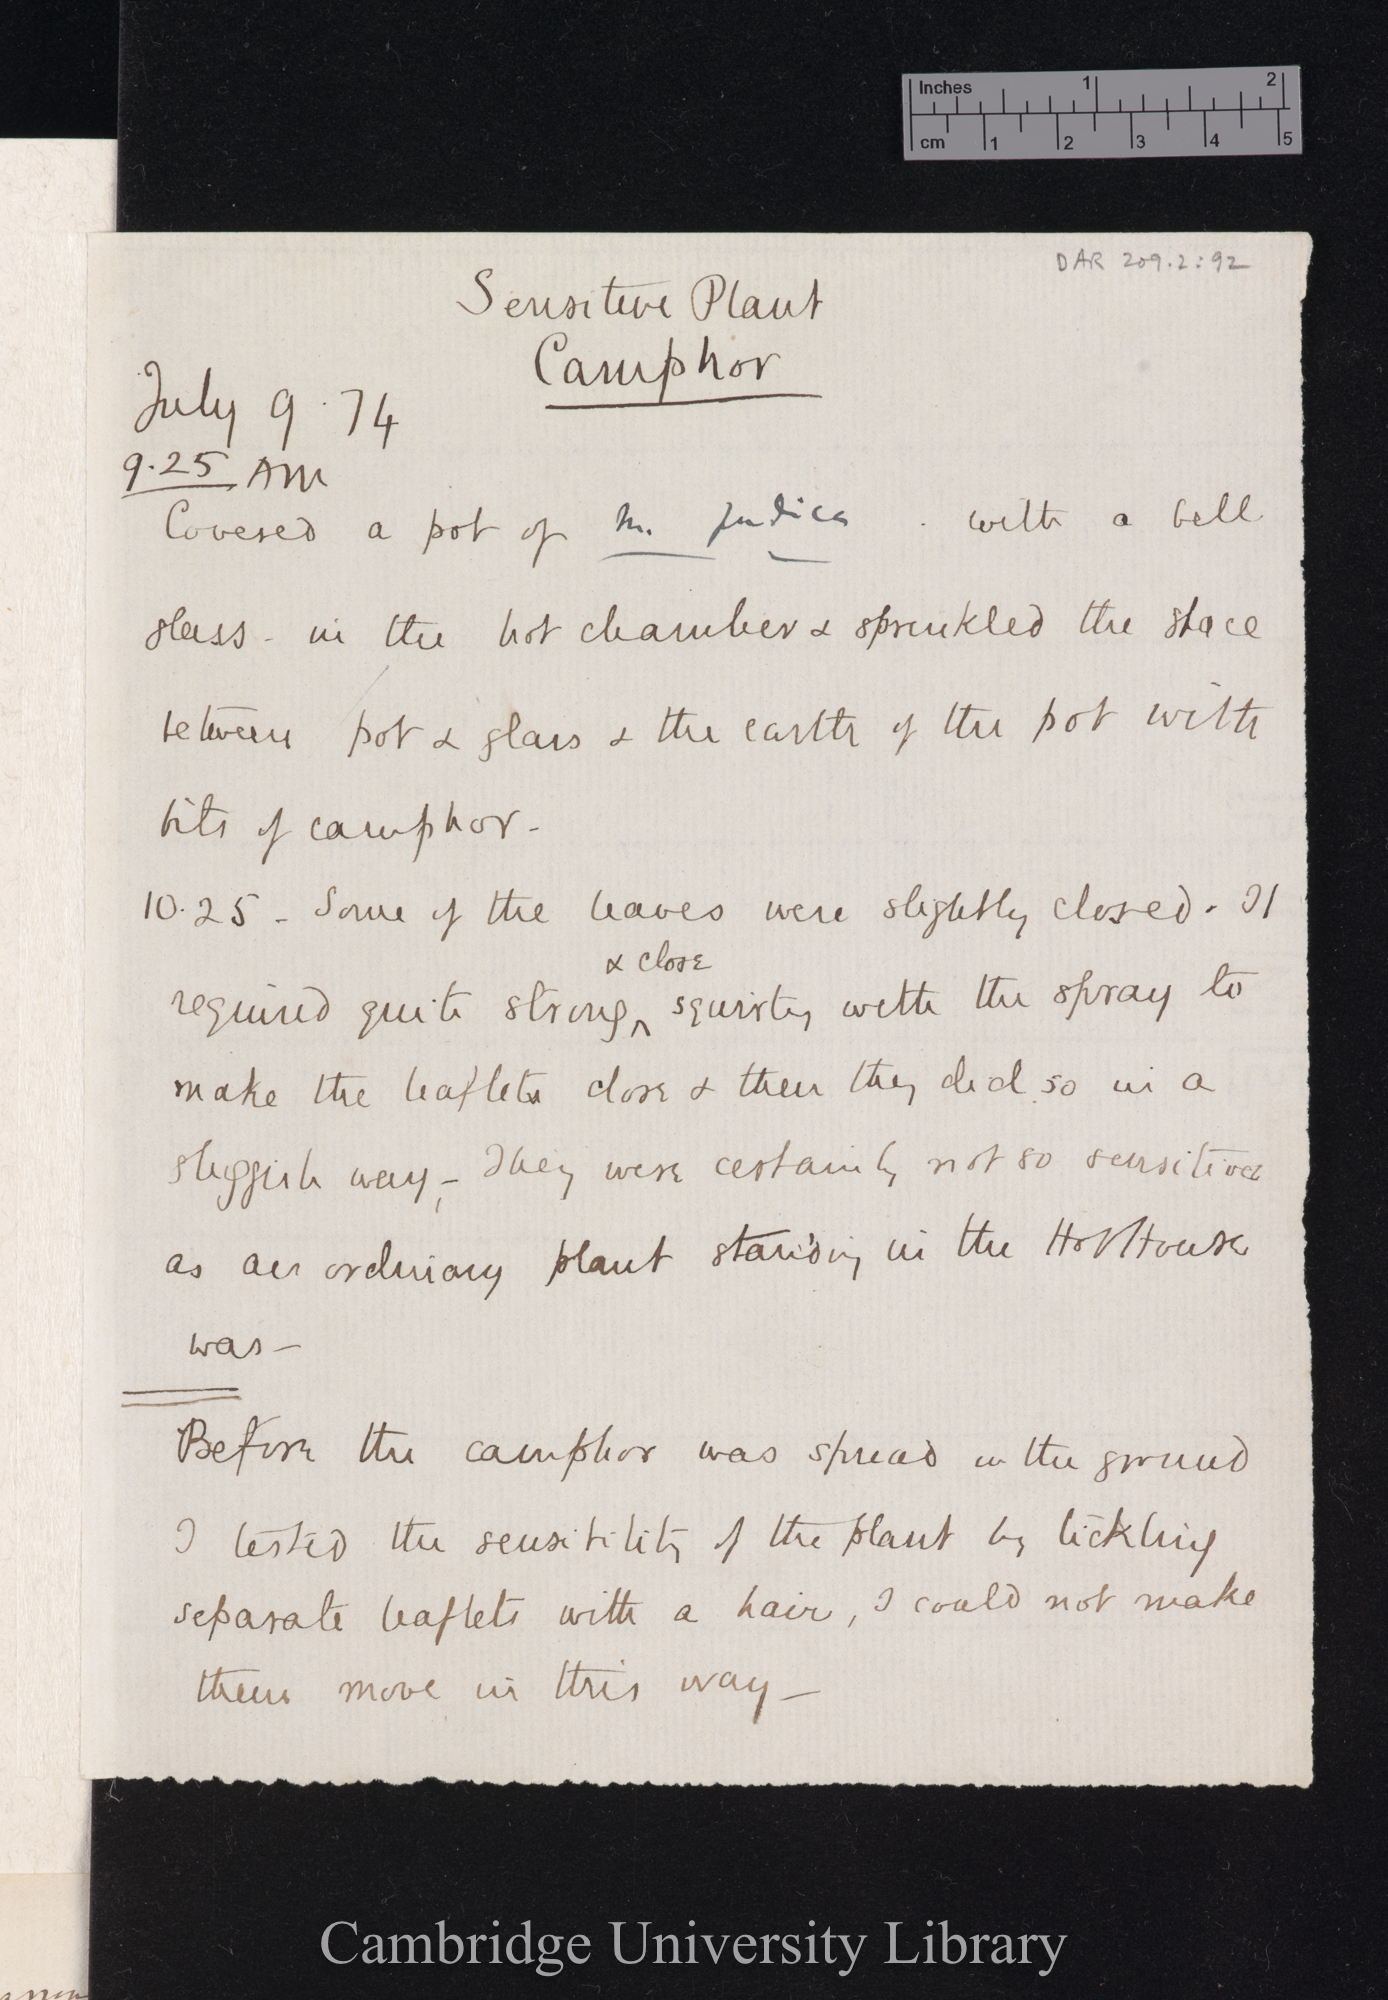 Inches 1 2
cm 1 2 3 4 5
DAR 209.2:92
Sensitive Plant
Camphor
July 9. 74
9.25 AM
Covered a pot of M. pudica. with a bell
glass - in the hot chamber & sprinkled the space
between pot & glass & the earth of the pot with
bits of camphor -
10.25 - Some of the leaves were slightly closed. It
& close
required quite strong ‸ squirting with the spray to
make the leaflets close & then they did so in a
sluggish way, - They were certainly not so sensitive
as an ordinary plant standing in the Hot House
was -
Before the camphor was spread on the ground
I tested the sensitility of the plant by tickling
separate leaflets with a hair, I could not make
them move in this way -
Cambridge University Library